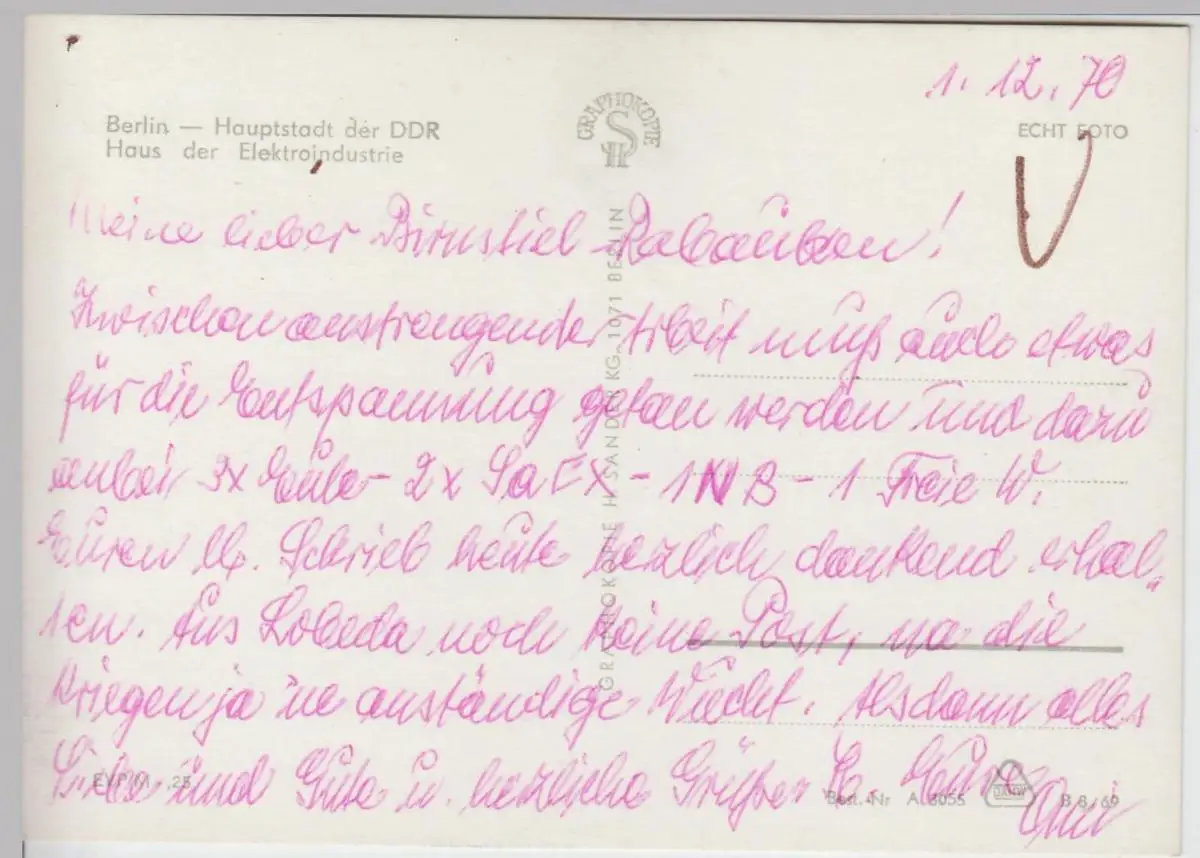 1. 12. 70
Berlin — Hauptstadt der DDR
Haus der Elektroindustrie
GRAPHOKOPIE
H S
ECHT FOTO
Meine lieber Birnstiel-Rabauken!
Zwischen anstrengender Arbeit muß auch etwas
für die Entspannung getan werden und dazu
anbei 3x Eule - 2x - 1 NB - 1 Freie W.
Euren lb. Schrieb heute herzlich dankend erhal„
ten. Aus Lobeda noch keine Post, na die
kriegen ja 'ne anständige Wucht. Alsdann alles
Liebe und Gute u. herzliche Grüße Euer
GRAPHOKOPIE H. SANDER KG, 1071 BERLIN
EVP/M -,25
Best.-Nr A 3055
B 8/69